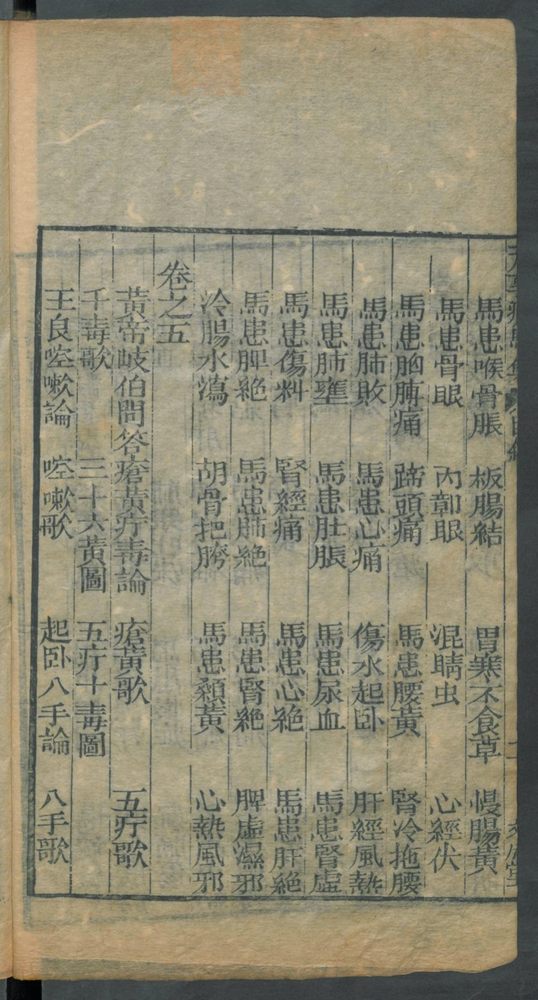 馬患喉骨脹 板腸結 胃寒不食草 慢腸黃
馬患骨眼 內鄣眼 混睛虫 心經伏
馬患胸膊痛 蹄頭痛 馬患腰黃 腎冷拖腰
馬患肺敗 馬患心痛 傷水起卧 肝經風熱
馬患肺壅 馬患肚脹 馬患尿血 馬患腎虛
馬患傷料 腎經痛 馬患心絕 馬患肝絕
馬患脾絕 馬患肺絕 馬患腎絕 脾虛濕邪
冷腸水瀉 胡骨把胯 馬患顙黃 心熱風邪
卷之五
黃帝岐伯問答瘡黃疔毒論 瘡黃歌 五疔歌
千毒歌 三十六黃圖 五疔十毒圖
王良啌嗽論 啌嗽歌 起卧八手論 八手歌